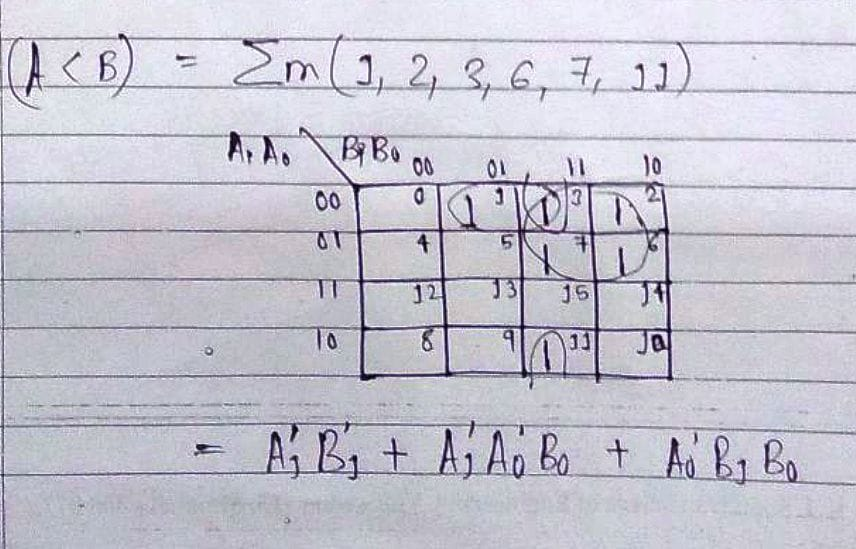 (A < B) = Σm(1, 2, 3, 6, 7, 11)
A₁A₀ \ B₁B₀ 00 01 11 10
00 0 1 1 1 3 1 2
01 4 5 1 7 1 6
11 12 13 15 14
10 8 9 1 11 10
= A₁'B₁' + A₁'A₀'B₀ + A₀'B₁B₀